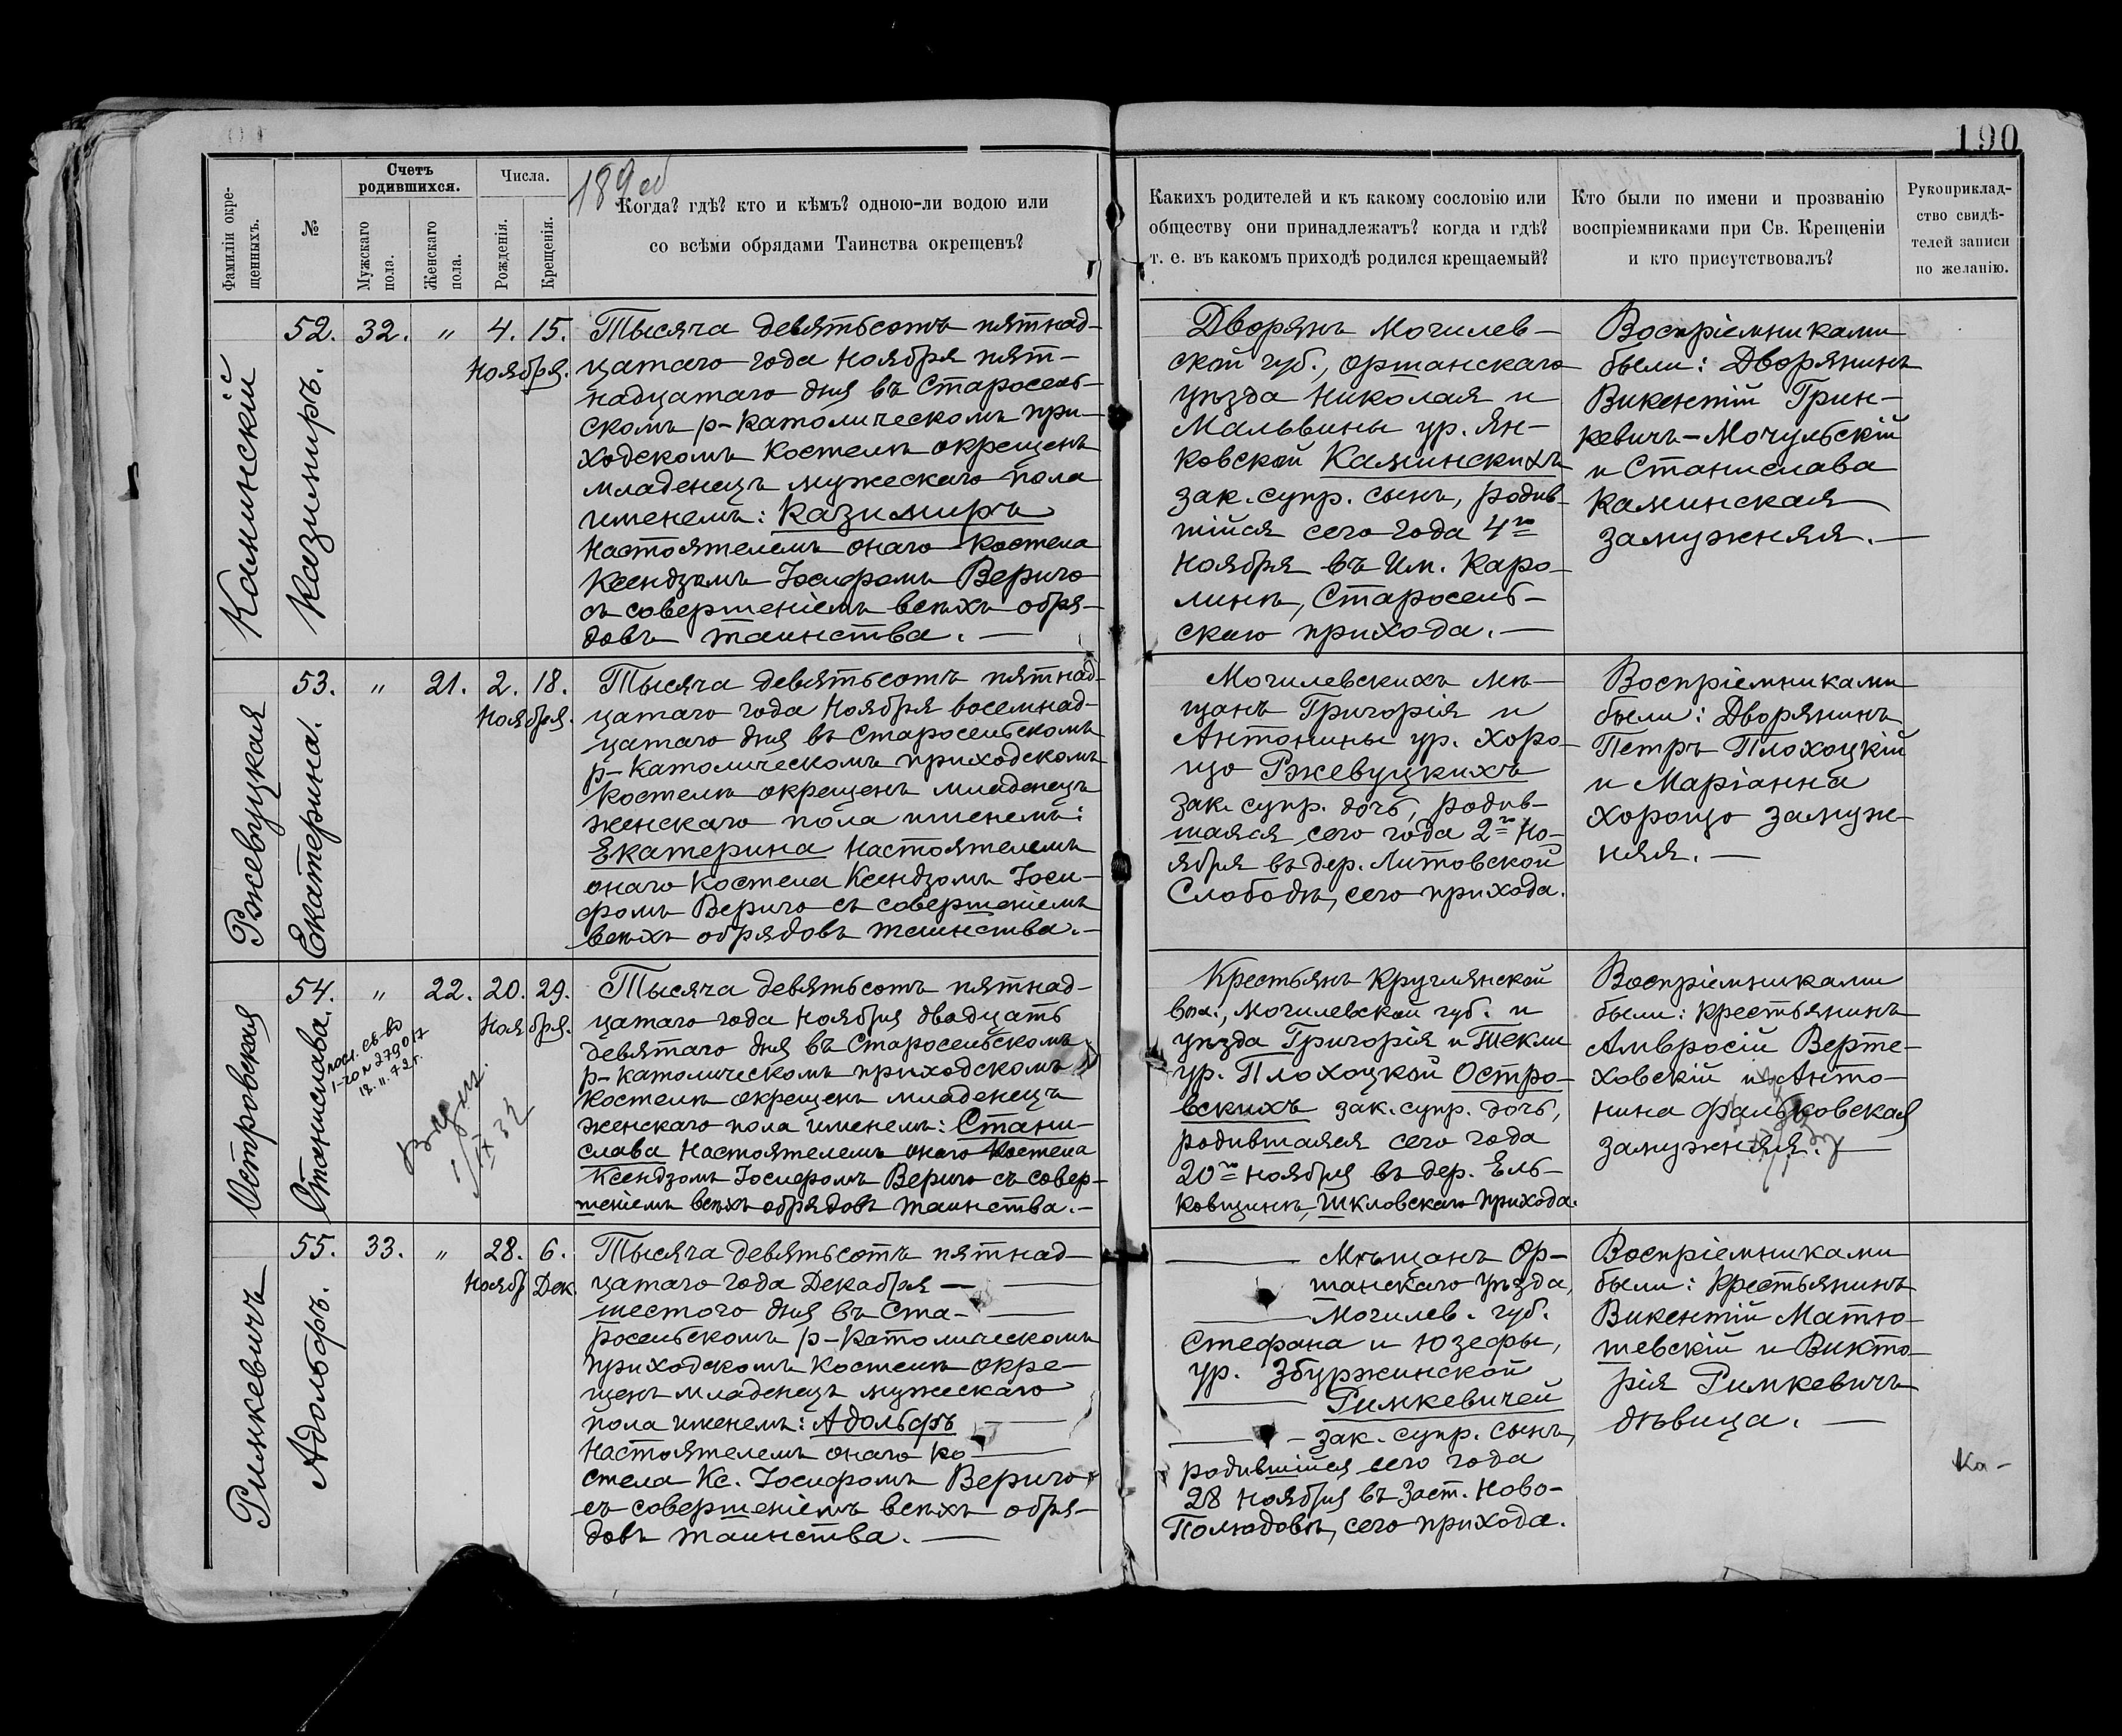 190
189об
Фамиліи окре-
щенныхъ.
№
Счетъ
родившихся.
Мужскаго
пола.
Женскаго
пола.
Числа.
Рожденія.
Крещенія.
Когда? гдѣ? кто и кѣмъ? одною-ли водою или
со всѣми обрядами Таинства окрещенъ?
Какихъ родителей и къ какому сословію или
обществу они принадлежатъ? когда и гдѣ?
т. е. въ какомъ приходѣ родился крещаемый?
Кто были по имени и прозванію
воспріемниками при Св. Крещеніи
и кто присутствовалъ?
Рукоприклад-
ство свидѣ-
телей записи
по желанію.
Каминскій
Казимиръ.
52. 32. " 4. 15.
Ноября.
Тысяча девятьсотъ пятнад-
цатаго года Ноября пят-
надцатаго дня въ Старосель-
скомъ р-католическомъ при-
ходскомъ костелѣ окрещенъ
младенецъ мужескаго пола
именемъ: Казимиръ
Настоятелемъ онаго костела
Ксендзомъ Іосифомъ Верига
съ совершеніемъ всѣхъ обря-
довъ таинства. —
Дворянъ Могилев-
ской губ., Оршанскаго
уѣзда Николая и
Мальвины ур. Ян-
ковской Каминскихъ
зак. супр. сынъ, родив-
шійся сего года 4го
Ноября въ Им. Каро-
линѣ, Старосель-
скаго прихода. —
Воспріемниками
были: Дворянинъ
Викентій Грин-
кевичъ-Мочульскій
и Станислава
Каминская
замужняя. —
Ржевуцкая
Екатерина.
53. " 21. 2. 18.
Ноября.
Тысяча девятьсотъ пятнад-
цатаго года Ноября восемнад-
цатаго дня въ Старосельскомъ
р-католическомъ приходскомъ
костелѣ окрещенъ младенецъ
женскаго пола именемъ:
Екатерина Настоятелемъ
онаго костела Ксендзомъ Іоси-
фомъ Верига съ совершеніемъ
всѣхъ обрядовъ таинства. —
Могилевскихъ мѣ-
щанъ Григорія и
Антонины ур. Хоро-
що Ржевуцкихъ
зак. супр. дочь, родив-
шаяся сего года 2го Но-
ября въ дер. Литовской
Слободѣ, сего прихода.
Воспріемниками
были: Дворянинъ
Петръ Плохоцкій
и Маріанна
Хорощо замуж-
няя. —
Островская
Станислава.
54. " 22. 20. 29.
Ноября.
1-го № 279017
Тысяча девятьсотъ пятнад-
цатаго года Ноября двадцать
девятаго дня въ Старосельскомъ
р-католическомъ приходскомъ
костелѣ окрещенъ младенецъ
женскаго пола именемъ: Стани-
слава Настоятелемъ онаго костела
Ксендзомъ Іосифомъ Верига съ совер-
шеніемъ всѣхъ обрядовъ таинства. —
Крестьянъ Круглянской
вол., Могилевской губ. и
уѣзда Григорія и Текли
ур. Плохоцкой Остро-
вскихъ зак. супр. дочь,
родившаяся сего года
20го Ноября въ дер. Ель-
ковщинѣ, Шкловскаго прихода.
Воспріемниками
были: Крестьянинъ
Амвросій Верте-
ховскій и Анто-
нина Фальковская
замужняя. —
Римкевичъ
Адольфъ.
55. 33. " 28. 6.
Ноябр Дек.
Тысяча девятьсотъ пятнад-
цатаго года Декабря —
шестого дня въ Ста-
росельскомъ р-католическомъ
приходскомъ костелѣ окре-
щенъ младенецъ мужескаго
пола именемъ: Адольфъ
Настоятелемъ онаго ко-
стела Кс. Іосифомъ Верига
съ совершеніемъ всѣхъ обря-
довъ таинства. —
Мѣщанъ Ор-
шанскаго уѣзда,
Могилев. губ.
Стефана и Юзефы,
ур. Збуржинской
Римкевичей
зак. супр. сынъ,
родившійся сего года
28 Ноября въ Заст. Ново-
Полюдовѣ, сего прихода.
Воспріемниками
были: Крестьянинъ
Викентій Матю-
шевскій и Викто-
рія Римкевичъ
дѣвица. —
Ка-